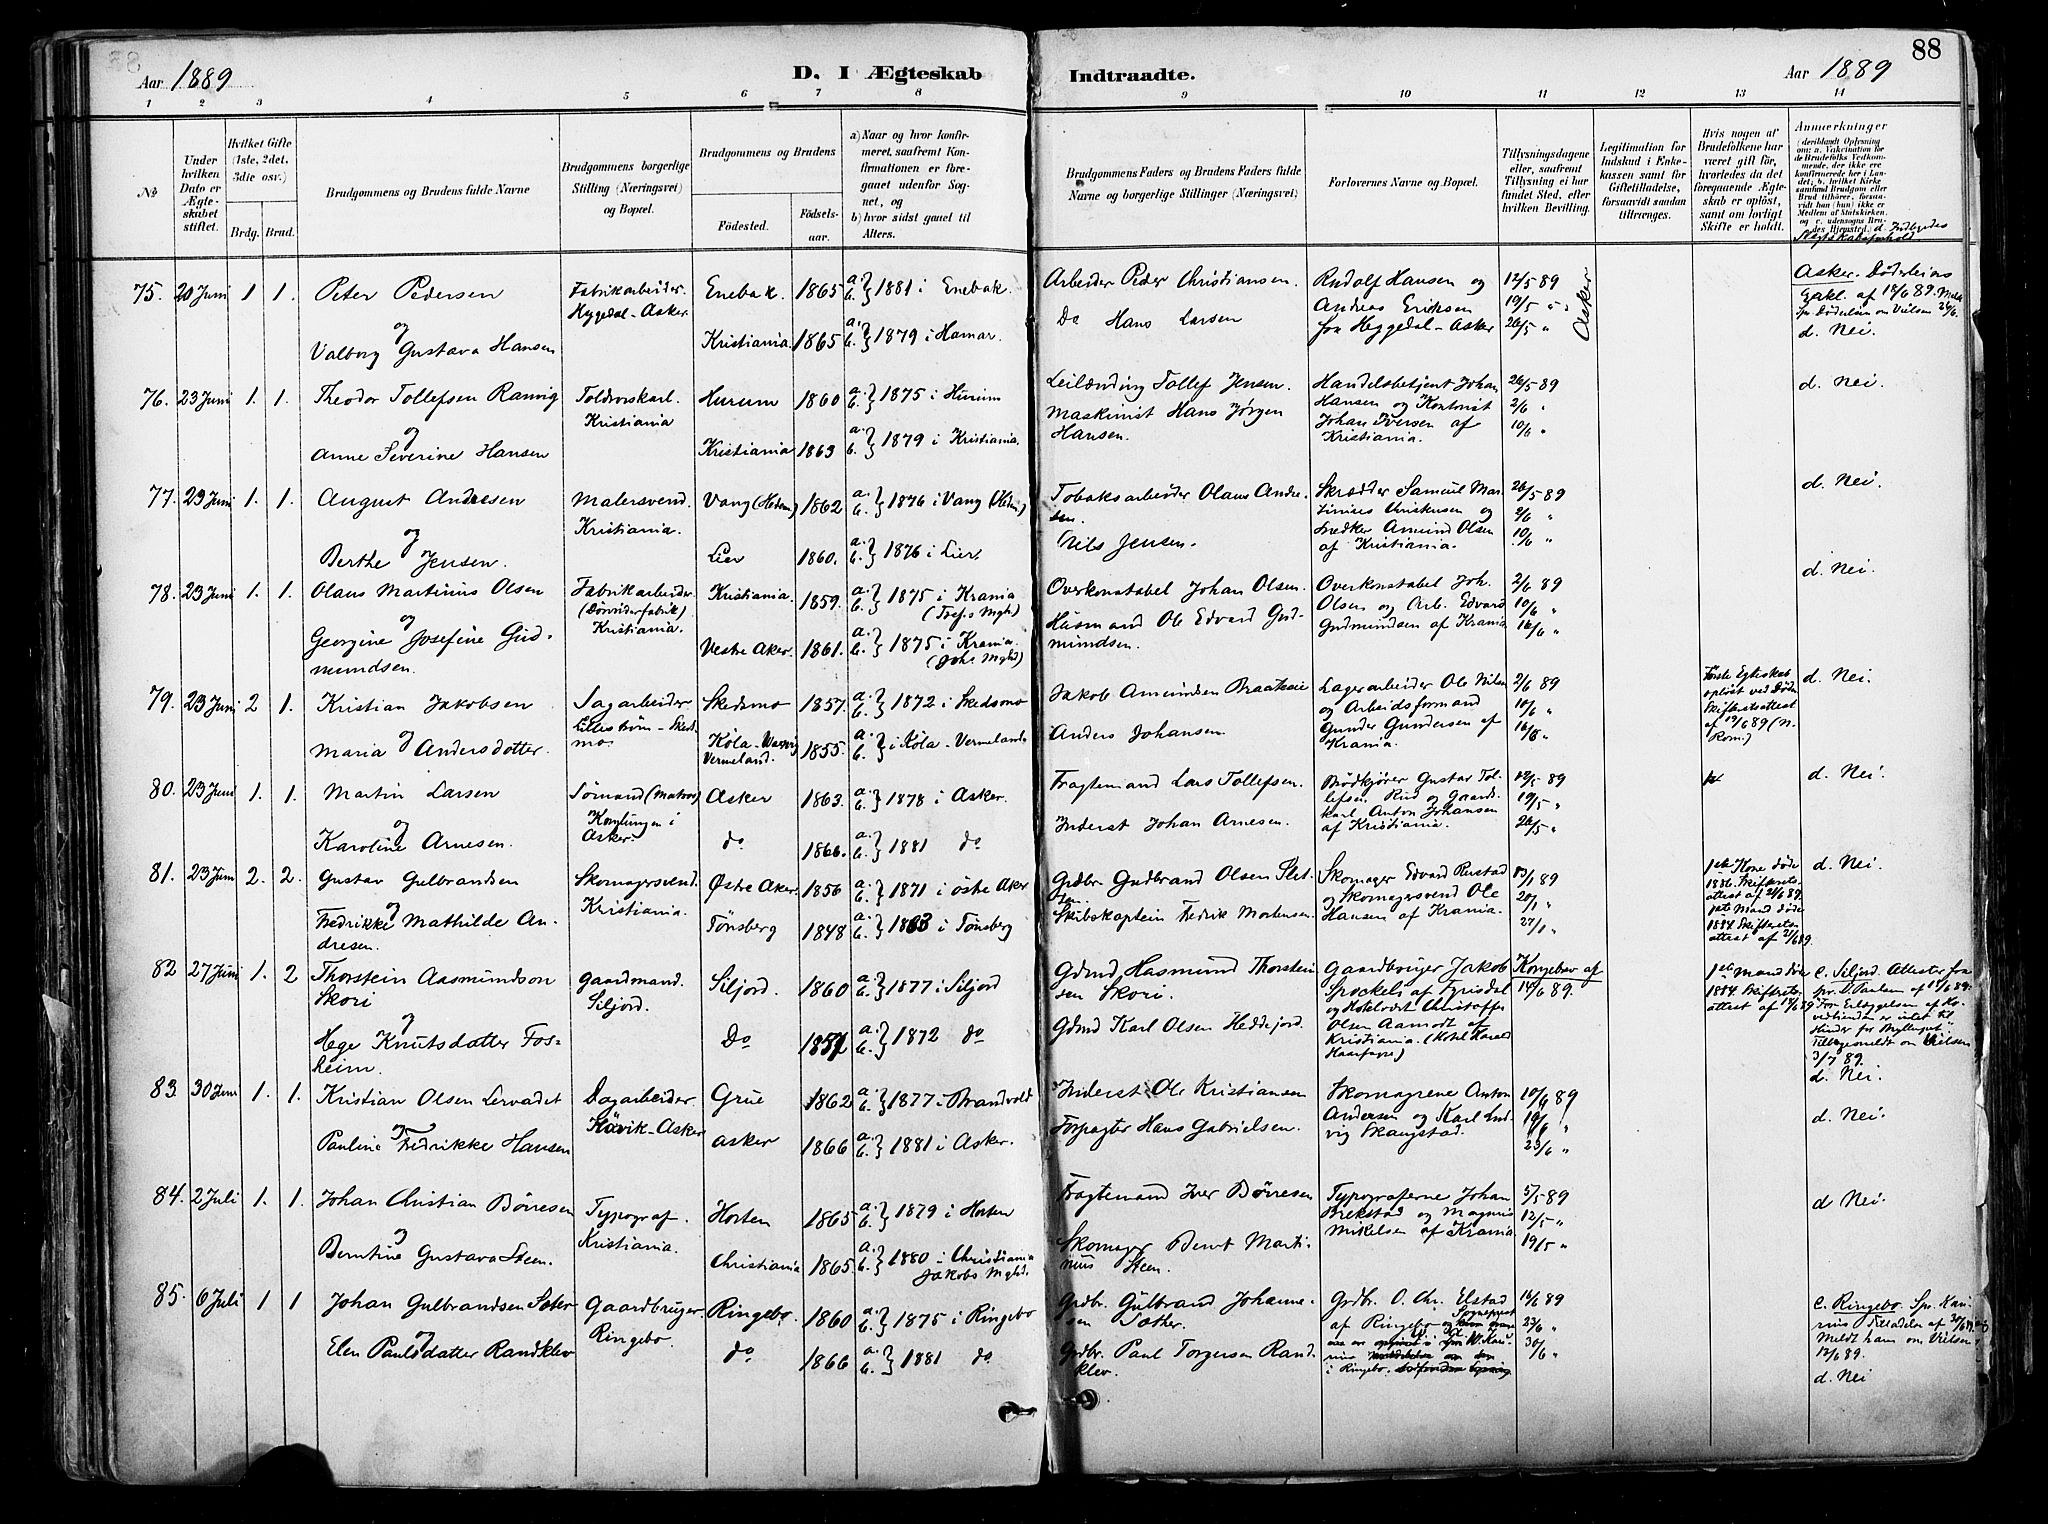 88
Aar 1889
D. I Ægteskab
Indtraadte.
Aar 1889
88
1 2 3 4 5 6 7 8 9 10 11 12 13 14
No.
Under hvilken Dato er Ægteskabet stiftet.
Hvilket Gifte (1ste, 2det, 3die osv.)
Brdg. Brud.
Brudgommens og Brudens fulde Navne
Brudgommens borgerlige Stilling (Næringsvei) og Bopæl.
Brudgommens og Brudens
Fødested.
Fødselsaar.
a) Naar og hvor konfirmeret, saafremt Konfirmationen er foregaaet udenfor Sognet, og
b) hvor sidst gaaet til Alters.
Brudgommens Faders og Brudens Faders fulde Navne og borgerlige Stillinger (Næringsvei)
Forlovernes Navne og Bopæl.
Tillysningsdagene eller, saafremt Tillysning ei har fundet Sted, efter hvilken Bevilling.
Legitimation for Indskud i Enkekassen samt for Giftetilladelse, forsaavidt saadan tiltrænges.
Hvis nogen af Brudefolkene har været gift før, hvorledes da det foregaaende Ægteskab er opløst, samt om lovligt Skifte er holdt.
Anmerkninger
(deriblandt Oplysning om: a. Vakcination for de Brudefolks Vedkommende, der ikke ere konfirmerede her i Landet; b. hvilket Kirkesamfund Brudgom eller Brud tilhører, forsaavidt han (hun) ikke er Medlem af Statskirken, og c. udensogns Brudes Hjemsted. d. Indbyrdes Slegtskabsforhold
75. 20 Juni 1 1. Peter Pedersen
og
Valborg Gustava Hansen
Fabrikarbeider.
Hygedal-Asker.
Enebak. 1865 a. b. } 1881 i Enebak.
Kristiania. 1865 a. b. } 1879 i Hamar.
Arbeider Peder Christiansen.
Do Hans Larsen
Rudolf Hansen og
Andreas Eriksen
fra Heggedal-Asker
12/5 89
19/5 "
26/5 "
Asker
Asker. Dødbeins
Gakl. af 18/6 89.
d. Nei.
76. 23 Juni 1. 1. Theodor Tollefsen Ramvig
og
Anne Severine Hansen
Toldvorskarl.
Kristiania
Hurum 1860 a. b. } 1875 i Hurum
Kristiania 1863 a. b. } 1879 i Kristiania.
Leilænding Tollef Jensen.
Maskinist Hans Jørgen
Hansen.
Handelsbetjent Johan
Hansen og Kontorist
Johan Iversen af
Kristiania.
26/5 89
2/6 "
10/6 "
d. Nei.
77. 23 Juni 1. 1. August Andresen
og
Berthe Jensen.
Malersvend.
Kristiania.
Vang (Hedm) 1862 a. b. } 1876 i Vang (Hedm)
Lier 1860. a. b. } 1876 i Lier.
Tobaksarbeider Olaus Andresen.
Nils Jensen.
Skrædder Samuel Martinius Christensen og
Snedker Amund Olsen
af Kristiania.
26/5 89
2/6 "
10/6 "
d. Nei.
78. 23 Juni 1. 1. Olaus Martinius Olsen
og
Georgine Josefine Gudmundsen.
Fabrikarbeider
Kristiania.
Kristiania. 1859. a. b. } 1875 i Krania
(Tref. Mgh)
Vestre Aker. 1861. a. b. } 1875 i Krania.
(Johs Mghd)
Overkonstabel Johan Olsen.
Husmand Ole Edvard Gudmundsen.
Overkonstabel Joh.
Olsen og Arb. Edvard
Gudmundsen af Krania
2/6 89
10/6 "
16/6 "
d. Nei.
79. 23 Juni 2 1. Kristian Jakobsen
og
Maria Andersdotter.
Sagarbeider
Lillestrøm-Skedsmo.
Skedsmo 1857. a. b. } 1872 i Skedsmo
Köla-Vermeland. 1855. a. b. } i Köla-Vermeland
Jakob Amundsen Braateie
Anders Johansen.
Lagerarbeider Ole Nilsen
og Arbeidsformand
Gunder Gundersen af
Krania.
2/6 89
10/6 "
16/6 "
Første Egteskab
opløst ved Døden
Skifteretsattest
af 19/6 89 (N.
Rom.)
d. Nei.
80. 23 Juni 1. 1. Martin Larsen
og
Karoline Arnesen.
Sømand (Matros)
Konglungen i
Asker.
Asker 1863. a. b. } 1878 i Asker.
do 1866. a. b. } 1881 do
Fragtemand Lars Tollefsen.
Inderst Johan Arnesen.
Brødkjører Gustav Tollefsen Rud og Gaardskarl Anton Johansen
af Kristiania.
12/5 89
19/5 "
26/5 "
d. Nei.
81. 23 Juni 2. 2. Gustav Gulbrandsen
og
Fredrikke Mathilde Andresen.
Skomagersvend
Kristiania.
Østre Aker. 1856 a. b. } 1871 i Østre Aker
Tønsberg 1848 a. b. } 1863 i Tønsberg
Grdbr. Gudbrand Olsen Sletten
Skibskaptein Fredrik Mortensen
Skomager Edvard Rustad
og Skomagersvend Ole
Hansen af Krania.
13/1 89
20/1 "
27/1 "
1ste Kone døde
1886. Skifteretsattest af 21/6 89.
1ste Mand døde
1884. Skifteretsattest af 21/6 89.
d. Nei.
82 27 Juni 1. 2 Thorstein Aasmundson
Skori
og
Hege Knutsdatter Fosheim.
Gaardmand.
Siljord.
Siljord. 1860 a. b. } 1877 i Siljord
Do 1857 a. b. } 1872 do
Gdmd Hasmund Thorsteinsen Skori.
Gdmd Karl Olsen Heddejord.
Gaardbruger Jakob
af Fyrisdal
og Hotelvært Christoffer
Olsen Aamodt af
Kristiania. (Hotel Harald
Haarfagre)
Kongebrev af
14/6 89.
1ste Mand døde
1884. Skifteretsattest af 14/6 89
c. Siljord. Attester fra
Spr. D. Paulsen af 17/6 89.
Tilbagemeldt om Vielsen
3/7 89.
d. Nei.
83. 30 Juni 1. 1. Kristian Olsen Lervadet
og
Pauline Fredrikke Hansen
Dagarbeider
Slævik-Asker
Grue 1862 a. b. } 1877 i Brandvold
Asker 1866 a. b. } 1881 i Asker.
Inderst Ole Kristiansen
Forpagter Hans Gabrielsen.
Skomagrene Anton
Andersen og Karl Ludvig Skaugstad.
10/6 89
19/6 "
23/6 "
d. Nei.
84. 2 Juli 1. 1. Johan Christian Børresen
og
Berntine Gustava Steen.
Typograf.
Kristiania.
Horten 1865 a. b. } 1879 i Horten
Christiania 1865. a. b. } 1880 i Christiania
Jakobs Mghd.
Fragtemand Iver Børresen
Skomager Bernt Martinius Steen.
Typograferne Johan
Brekstad og Magnus
Mikelsen af Krania.
5/5 89
12/5 "
19/5 "
d Nei.
85. 6 Juli 1 1 Johan Gulbrandsen Sæter
og
Elen Paulsdatter Randklev
Gaardbruger
Ringebo.
Ringebo. 1860 a. b. } 1875 i Ringebo
do 1866 a. b. } 1881 do
Grdbr. Gulbrand Johannesen Sæther.
Grdbr. Paul Torgersen Randklev.
Grdbr. O. Chr. Elstad
af Ringebo og Sogneprest
i Ringebo.
16/6 89
23/6 "
30/6 "
c. Ringebo. Spr. Karinius Tilladelse af 30/6 89.
Meldt ham om Vielsen
12/6 89.
d. Nei